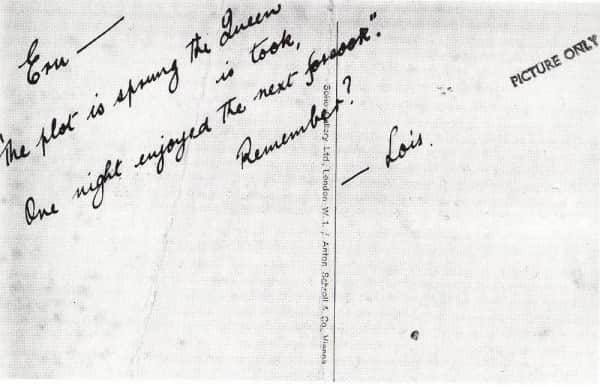 Ern —
"The plot is sprung the Queen
is took,
One night enjoyed the next forsook".
Remember?
— Lois.
PICTURE ONLY
Soho Gallery Ltd, London W.1. / Anton Schroll & Co, Vienna